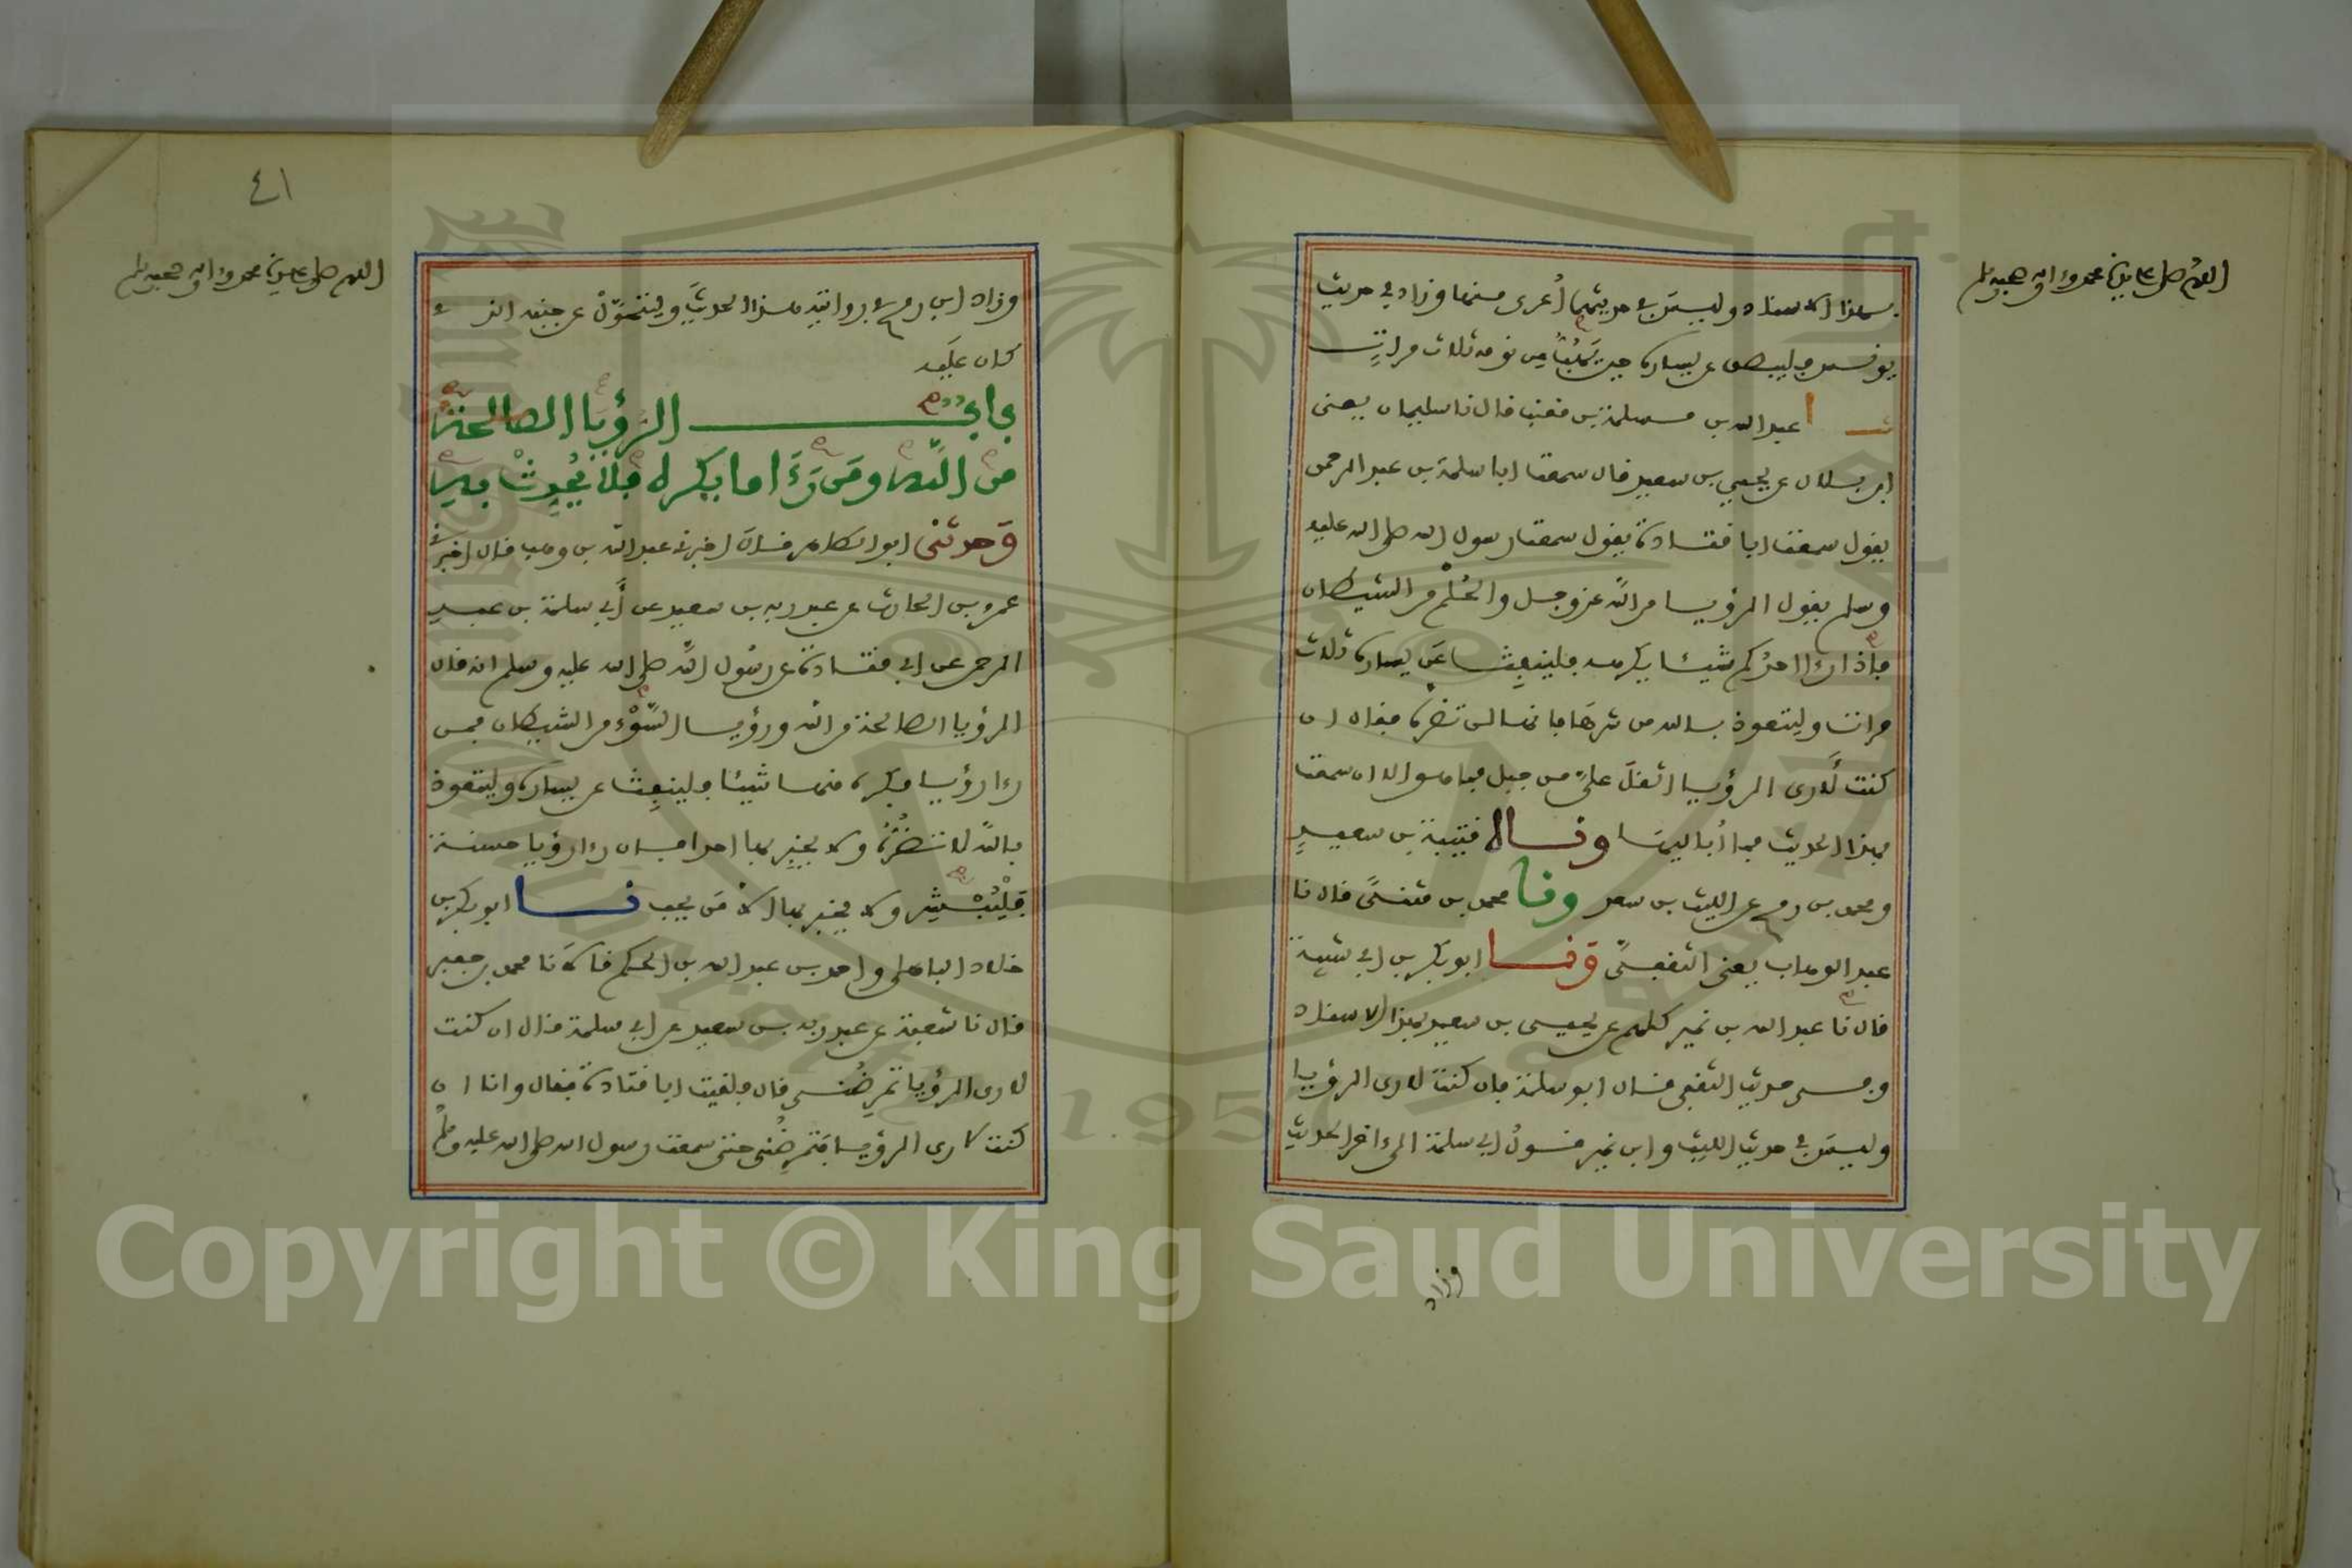 اللهم صل على سيدنا محمد وءاله وصحبه وسلم
بهذا الاسناد وليس في حديثهما أُعرى منها وزاد في حديث
يونس فليبصق عن يساره حين يَهُبُّ من نومه ثلاث مرات
ثنا عبد الله بن مسلمة بن قعنب قال نا سليمان يعنى
ابن بلال عن يحيى بن سعيد قال سمعت ابا سلمة بن عبد الرحمن
يقول سمعت ابا قتادة يقول سمعت رسول الله صلى الله عليه
وسلم يقول الرؤيا من الله عز وجل والحُلْم من الشيطان
فإذا رءا احدُكم شيئا يكرهه فلينفِث عَن يساره ثلاث
مرات وليتعوذ بالله من شرها فانها لن تضره فقال ان
كنت لَأرى الرؤيا اثقلَ علىَّ من جبل فما هو الا ان سمعت
بهذا الحديث فما أُباليها وثناه قتيبة بن سعيدٍ
ومحمد بن رمح عن الليث بن سعد ونا محمد بن مثنىً قال نا
عبد الوهاب يعنى الثقفىَّ وَثنا ابو بكر بن ابي شيبة
قال نا عبد الله بن نمير كلهم عن يحيى بن سعيد بهذا الاسناد
وفى حديث الثقفى قال ابو سلمة فان كنت لارى الرؤيا
وليس في حديث الليث وابن نمير قول ابي سلمة الى ءاخر الحديث
وزاد
٤١
اللهم صل على سيدنا محمد وءاله وصحبه وسلم
وزاد ابن رمح في روايته هذا الحديث وليتحوّلْ عن جنبه الذي
كان عليه
باب الرُؤيَا الصالحةُ
من اللَّه ومَن رَءَا ما يكره فلا يُحدِثْ بهِ
وَحدثنى ابو الطاهر قال اخبرنا عبد الله بن وهب قال اخبرني
عمرو بن الحارث عن عبد ربه بن سعيد عن أَبي سلمة بن عبد
الرحمن عن ابي قتادة عن رسُول اللَّه صلى الله عليه وسلم انه قال
الرؤيا الصالحة من الله ورؤيا السَّوْء من الشيطان فمن
رءا رؤيا فكره منها شيئا فلينفِث عن يساره وليتعوذ
باللَّه لا تضُرُّهُ ولا يخبِر بها احدا فان رءا رؤيا حسنة
فَلْيُبْشِر ولا يخبِر بها الاَّ مَن يحب ثنا ابو بكر بن
خلاد الباهلى واحمد بن عبد الله بن الحكم قالاَ نا محمد بن جعفر
قال نا شعبة عن عبد ربه بن سعيد عن ابي سلمة قال ان كنت
لارى الرؤيا تمرِضُنى قال فلقيت ابا قتادة فقال وانا ان
كنت لارى الرؤيا فتمرِضُنى حتى سمعت رسول الله صلى الله عليه وسلم
Copyright © King Saud University
1957